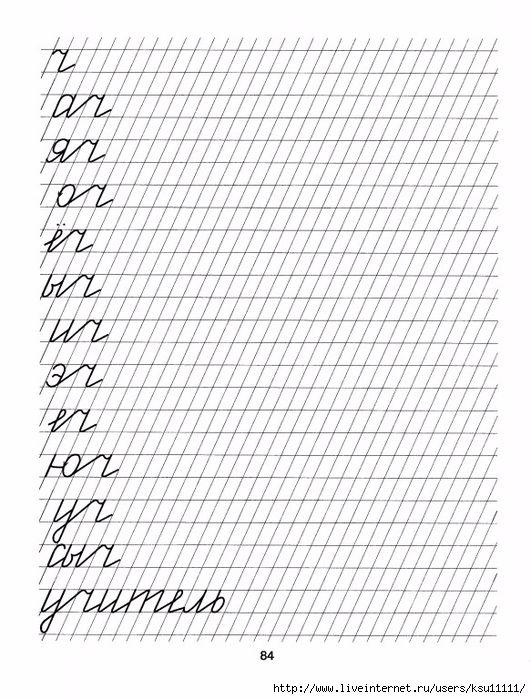 ч
ач
яч
оч
ёч
ыч
ич
эч
еч
юч
уч
сыч
учитель
84
http://www.liveinternet.ru/users/ksu11111/